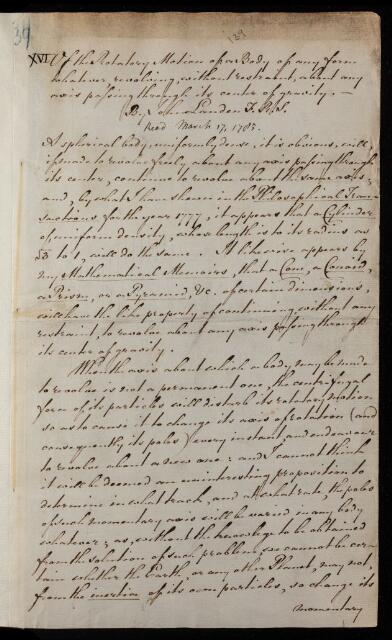 39
139
XVI. Of the Rotatory Motion of a Body of any form
whatever, revolving, without restraint, about any
axis passing through its center of gravity. —
By John Landen F.R.S.
Read March 17, 1785.
A spherical body uniformly dense, it is obvious, will,
if made to revolve freely about any axis passing through
its center, continue to revolve about the same axis;
and, by what I have shewn in the Philosophical Trans-
actions for the year 1777, it appears that a Cylinder
of uniform density, whose length is to its radius as
√3 to 1, will do the same. It likewise appears by
my Mathematical Memoirs, that a Cone, a Conoid,
a Prism, or a Pyramid, &c. of certain dimensions,
will have the like property of continuing, without any
restraint, to revolve about any axis passing through
its center of gravity.
When the axis about which a body may be made
to revolve is not a permanent one, the centrifugal
force of its particles will disturb its rotatory motion
so as to cause it to change its axis of rotation (and
consequently its poles) every instant, and endeavour
to revolve about a new one: and I cannot think
it will be deemed an uninteresting proposition to
determine in what track, and at what rate, the poles
of such momentary axis will be varied in any body
whatever; as, without the knowledge to be obtained
from the solution of such problem, we cannot be cer-
tain whether the Earth, or any other Planet, may not,
from the inertia of its own particles, so change its
momentary